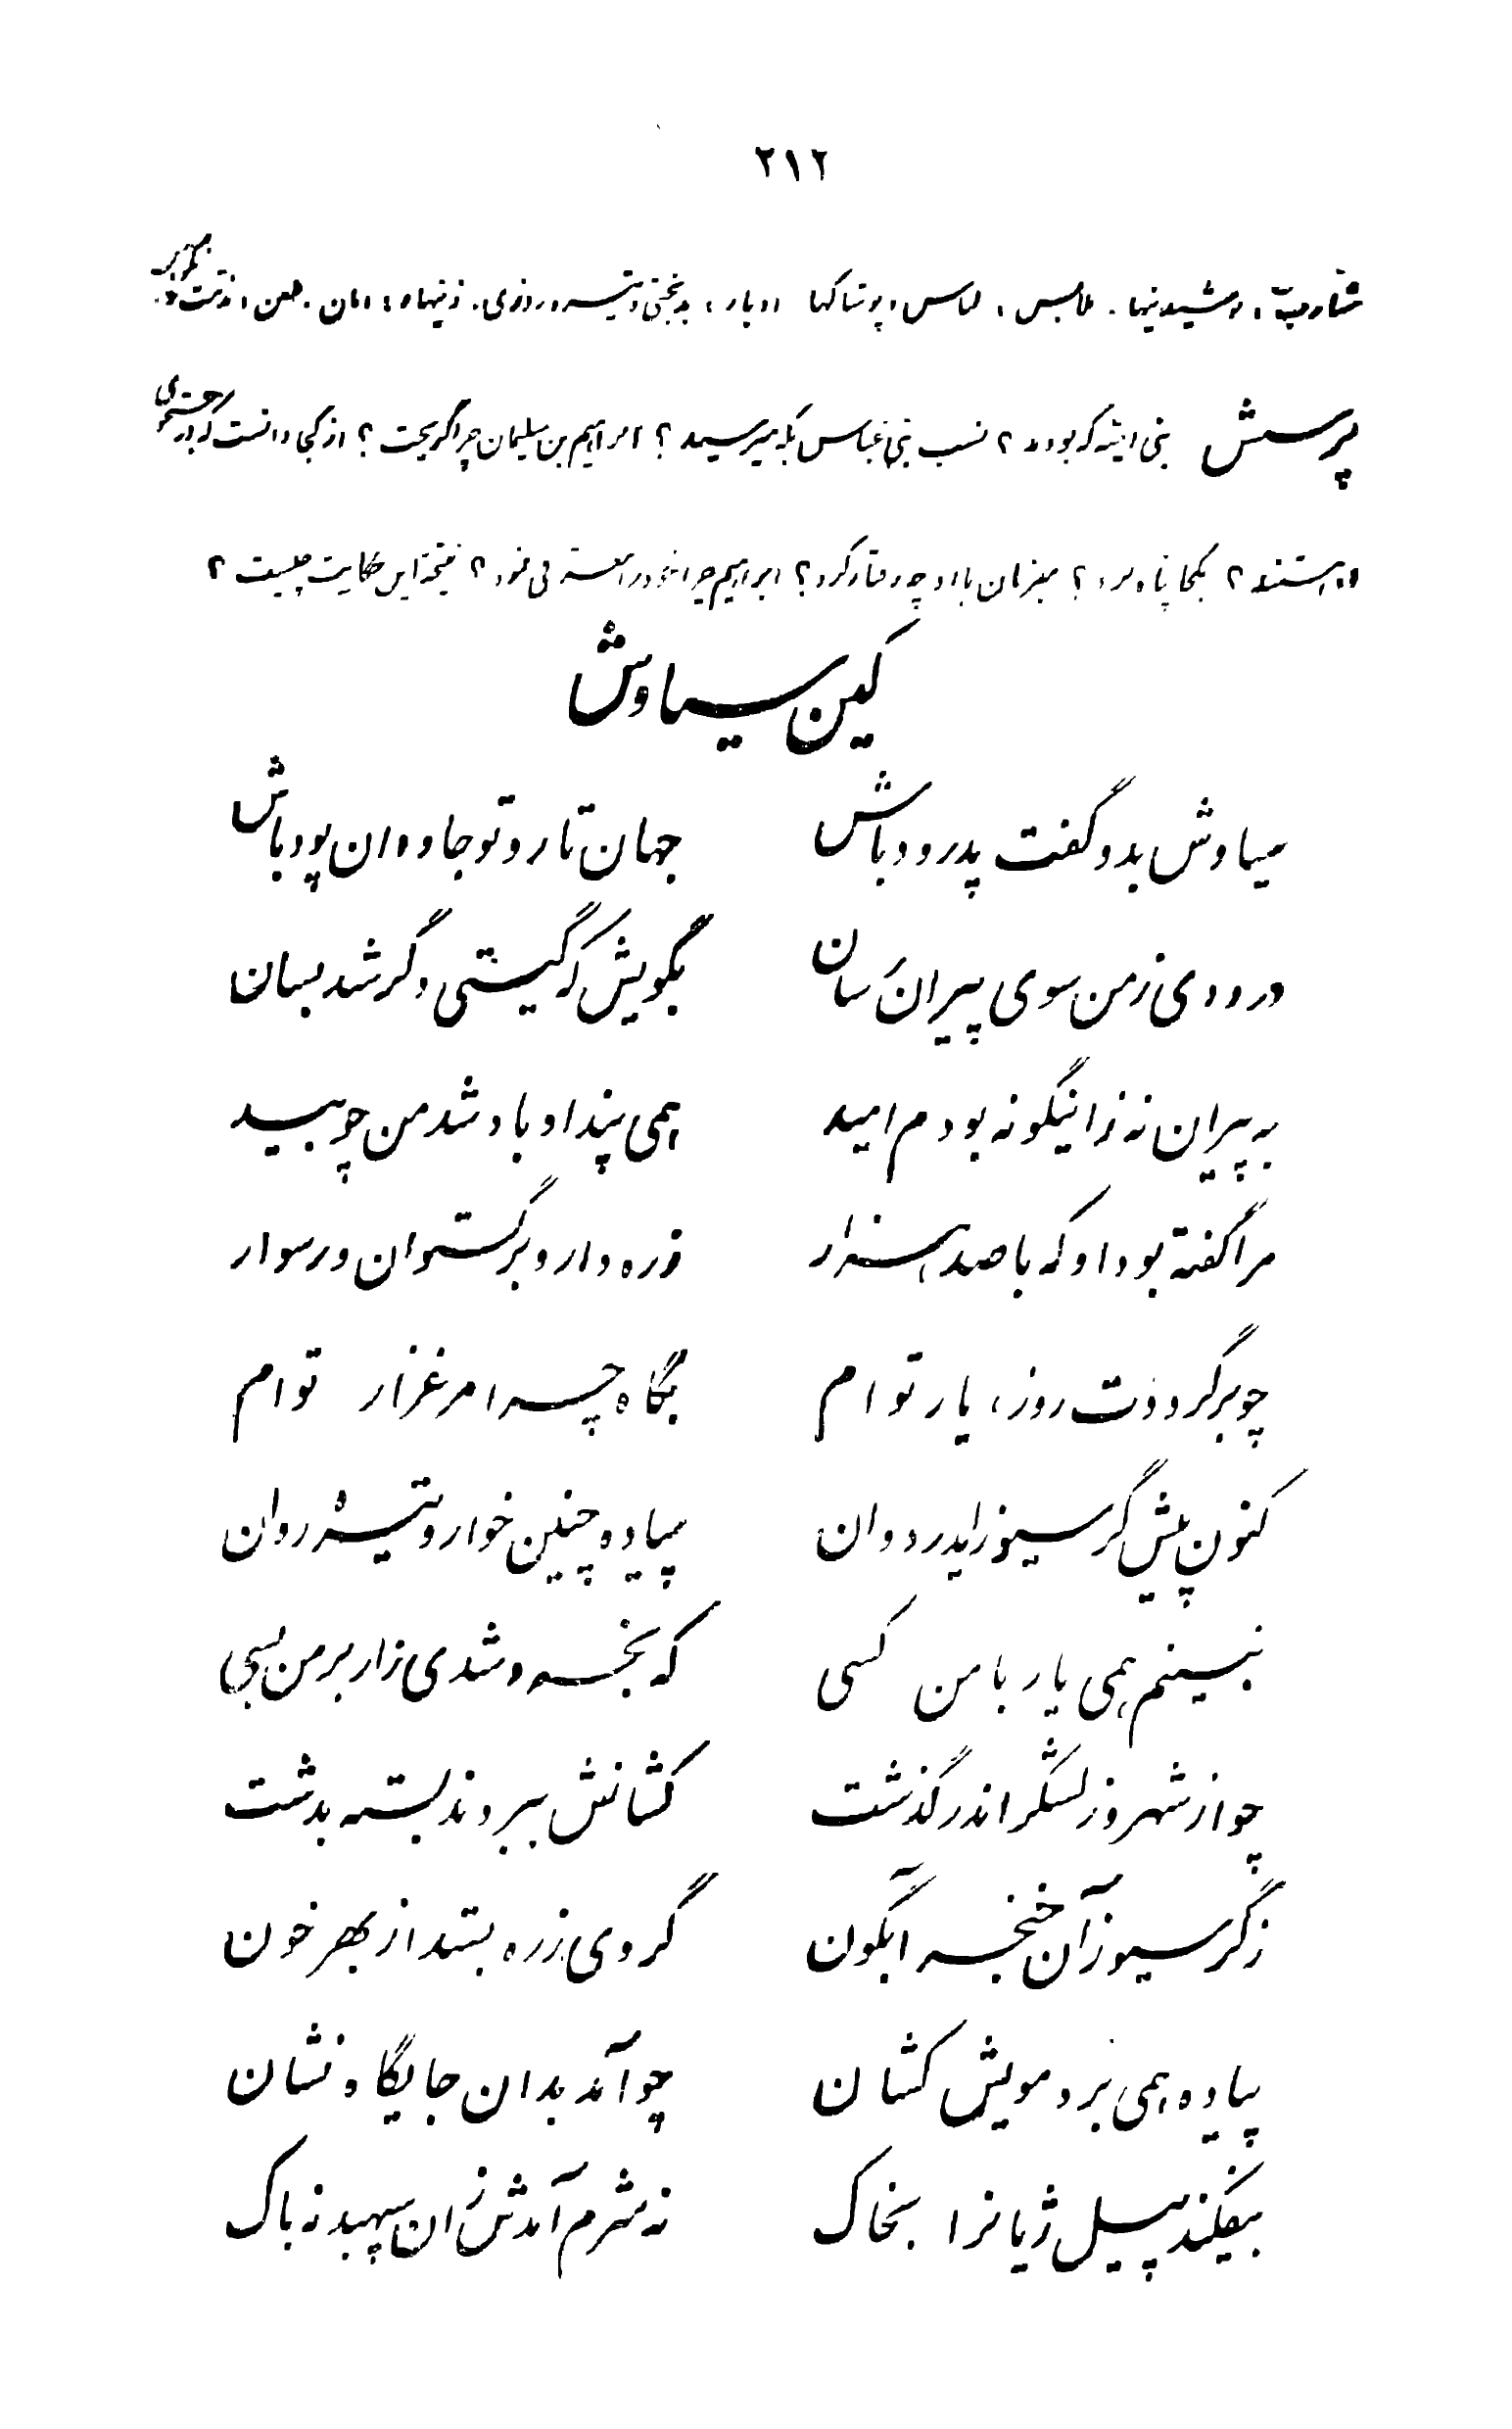 ۲۱۲
مشارب، نوشیدنیها. ملابس، لباس و پوشاکها ادبار، بدبختی و تیره روزی. زینهار، امان. طعن،
پرسش بنی امیه که بودند؟ نسب بنی عباس بکه میرسید؟ ابراهیم بن سلیمان چرا گریخت؟ از کجا دانست که در جستجوی
او هستند؟ بکجا پناه برد؟ میزبان با او چه رفتار کرد؟ ابراهیم چرا خود را معرفی نمود؟ نتیجه این حکایت چیست؟
کین سیاوش
سیاوش بدو گفت پدرود باش جهان تار و تو جاودان پود باش
درودی ز من سوی پیران رسان بگویش که گیتی دگر شد بسان
به پیران نه زاینگونه بودم امید همی پند او باد شد من چو بید
مرا گفته بود او که با صد هزار زره دار و برگستوان ور سوار
چو برگرددت روز، یار توام بگاه چرا مرغزار توام
کنون پیش گرسیوز ایدر دوان پیاده چنین خوار و تیره روان
نبینم همی یار با من کسی که بخروشدی زار بر من بسی
چو از شهر وز لشگر اندر گذشت کشانش ببردند بسته بدشت
ز گرسیوز آن خنجر آبگون گروی زره بستد از بهر خون
پیاده همی برد مویش کشان چو آمد بدان جایگاه نشان
بیفکند پیل ژیانرا بخاک نه شرم آمدش زان سپهبد نه باک